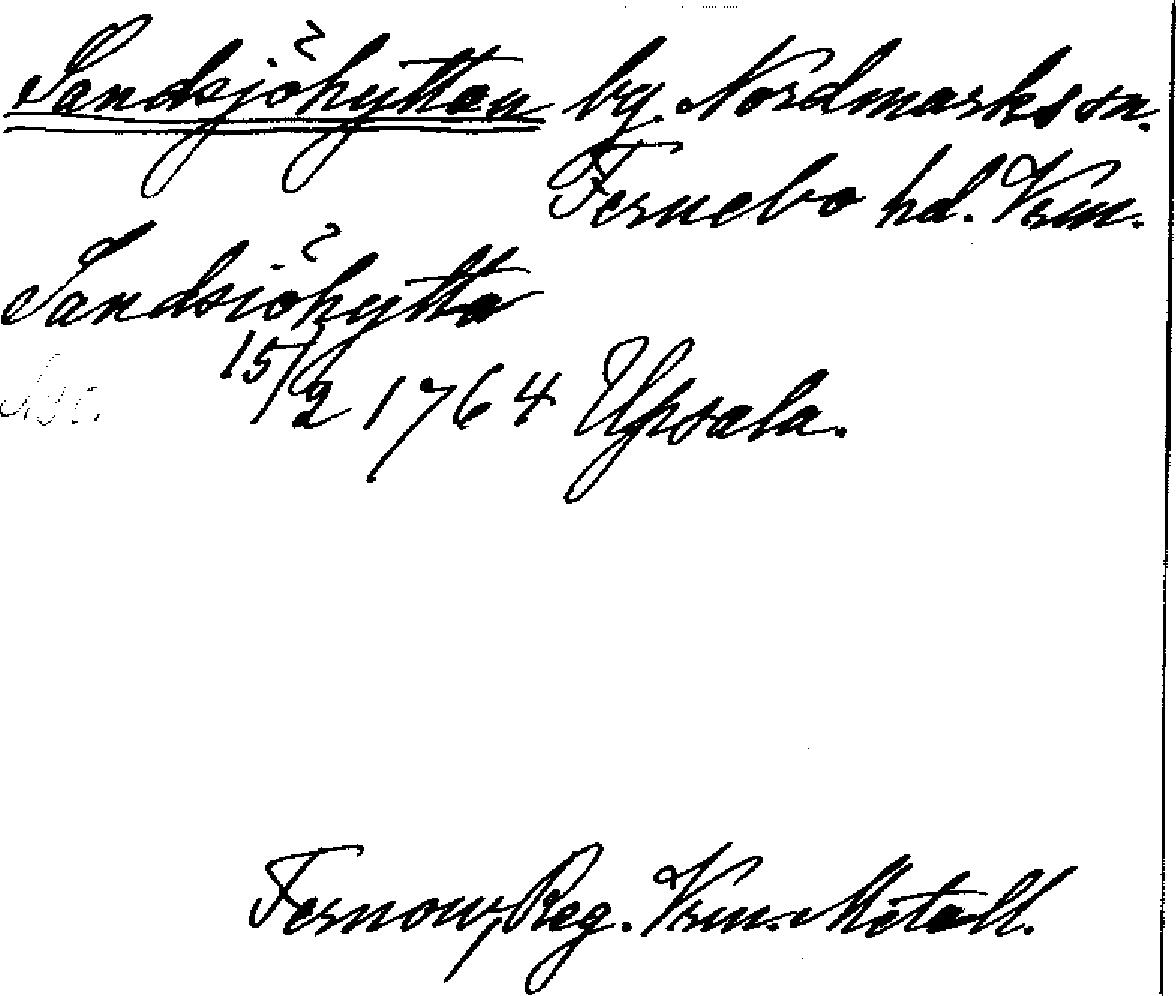 Sandsjöhyttan by Nordmarks sn.
Fernebo hd. Vrm.
Sandsiöhytta
15/2 1764 Upsala.
Fernow, Reg. Vrm. Metall.